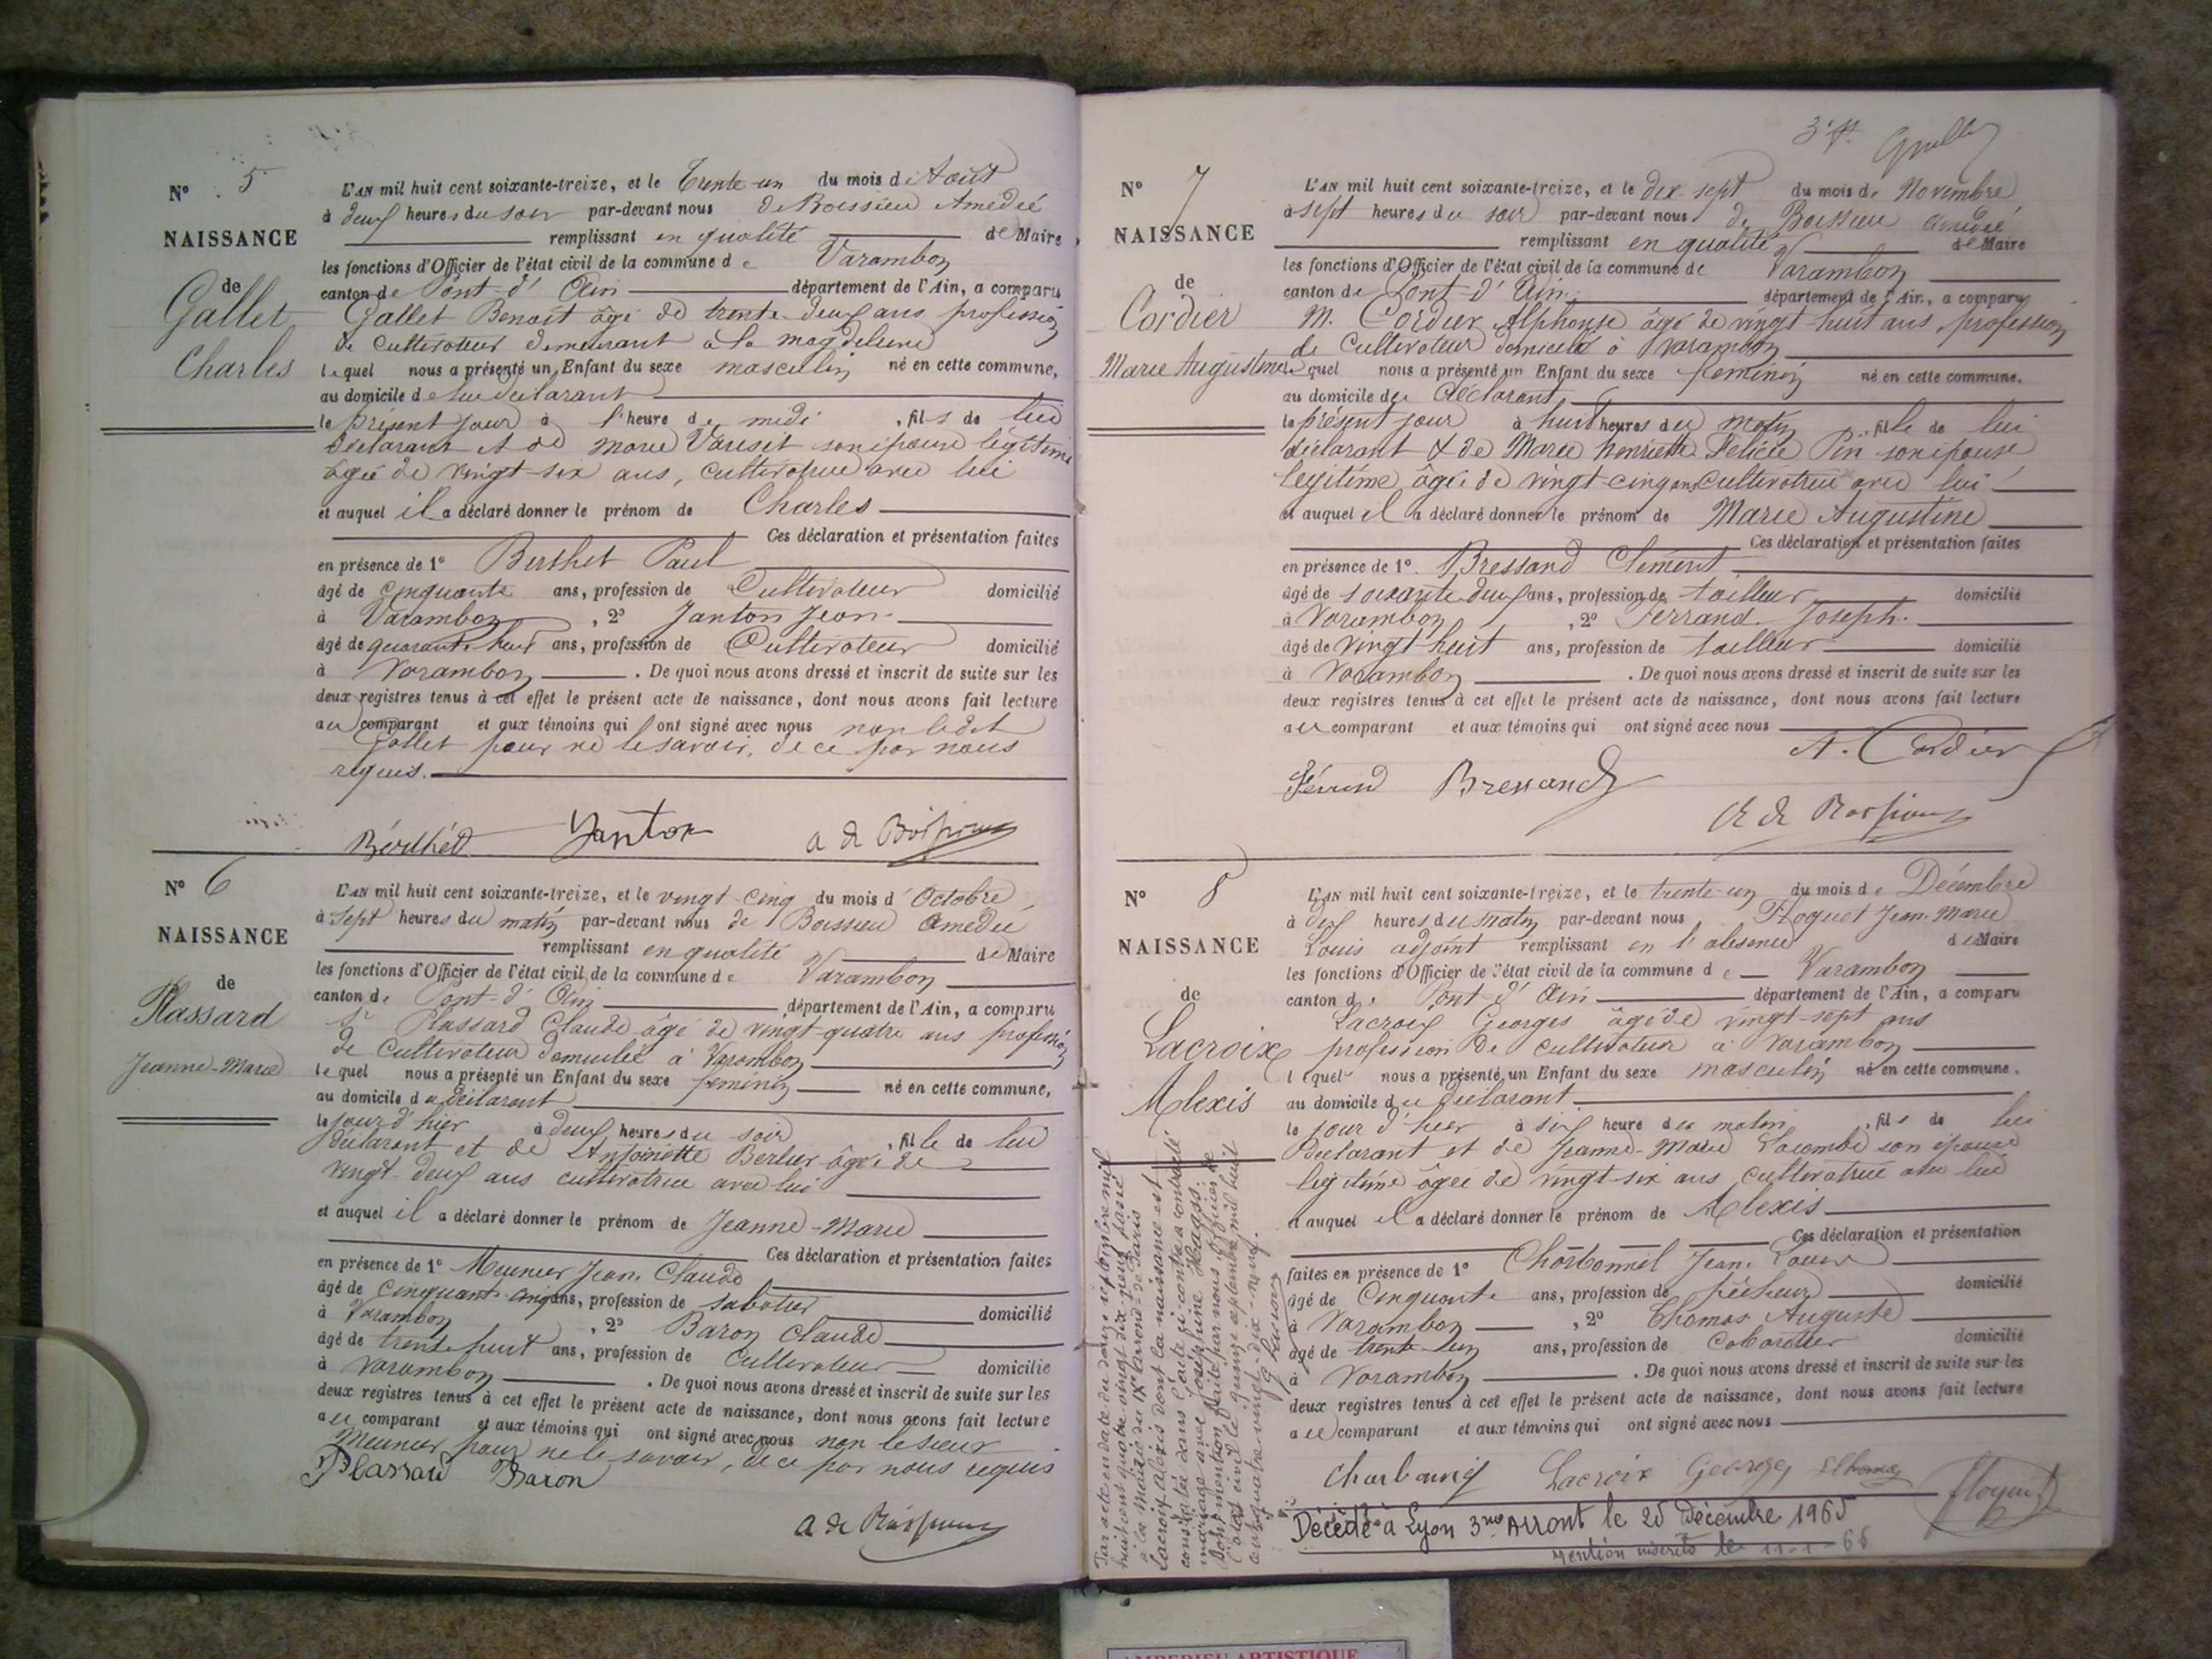 N° 5
NAISSANCE
de
Gallet
Charles
L'AN mil huit cent soixante-treize, et le Trente-un du mois d'Août
à deux heures du soir par-devant nous de Boissieu Amédée
remplissant en qualité de Maire
les fonctions d'Officier de l'état civil de la commune de Varambon
canton de Pont-d'Ain département de l'Ain, a comparu
Gallet Benoit âgé de trente-deux ans profession
de Cultivateur demeurant à la magdeleine
lequel nous a présenté un Enfant du sexe masculin né en cette commune,
au domicile de lui déclarant
le présent jour à l'heure de midi, fils de lui
déclarant et de Marie son épouse légitime
âgée de vingt-six ans, cultivatrice avec lui
et auquel il a déclaré donner le prénom de Charles
Ces déclaration et présentation faites
en présence de 1° Berthet Paul
âgé de cinquante ans, profession de Cultivateur domicilié
à Varambon, 2° Janton Jean
âgé de quarante huit ans, profession de Cultivateur domicilié
à Varambon. De quoi nous avons dressé et inscrit de suite sur les
deux registres tenus à cet effet le présent acte de naissance, dont nous avons fait lecture
au comparant et aux témoins qui ont signé avec nous non ledit
Gallet pour ne le savoir, de ce par nous
requis.
Berthet Janton a de Boissieu
N° 6
NAISSANCE
de
Plassard
Jeanne-Marie
L'AN mil huit cent soixante-treize, et le vingt-cinq du mois d'Octobre
à sept heures du matin par-devant nous de Boissieu Amédée
remplissant en qualité de Maire
les fonctions d'Officier de l'état civil de la commune de Varambon
canton de Pont-d'Ain département de l'Ain, a comparu
Sr Plassard Claude âgé de vingt-quatre ans profession
de Cultivateur domicilié à Varambon
lequel nous a présenté un Enfant du sexe féminin né en cette commune,
au domicile du déclarant
le jour d'hier à deux heures du soir, fille de lui
déclarant et de Antoinette Berlier âgée de
vingt-deux ans cultivatrice avec lui
et auquel il a déclaré donner le prénom de Jeanne-Marie
Ces déclaration et présentation faites
en présence de 1° Meunier Jean Claude
âgé de cinquante-cinq ans, profession de sabotier domicilié
à Varambon, 2° Baron Claude
âgé de trente huit ans, profession de Cultivateur domicilié
à Varambon. De quoi nous avons dressé et inscrit de suite sur les
deux registres tenus à cet effet le présent acte de naissance, dont nous avons fait lecture
au comparant et aux témoins qui ont signé avec nous non le sieur
Meunier pour ne le savoir, de ce par nous requis
Plassard Baron
a de Boissieu
3e ft
N° 7
NAISSANCE
de
Cordier
Marie Augustine
L'AN mil huit cent soixante-treize, et le dix-sept du mois de Novembre
à sept heures du soir par-devant nous de Boissieu amédée
remplissant en qualité de Maire
les fonctions d'Officier de l'état civil de la commune de Varambon
canton de Pont-d'Ain département de l'Ain, a comparu
M. Cordier Alphonse âgé de vingt-huit ans, profession
de Cultivateur domicilié à Varambon
lequel nous a présenté un Enfant du sexe féminin né en cette commune.
au domicile du déclarant
le présent jour à huit heures du matin, fille de lui
déclarant & de Marie Henriette Félicie Pin son épouse
légitime âgée de vingt-cinq ans cultivatrice avec lui
et auquel il a déclaré donner le prénom de Marie Augustine
Ces déclaration et présentation faites
en présence de 1° Bressand Clément
âgé de soixante-deux ans, profession de tailleur domicilié
à Varambon, 2° Ferrand Joseph
âgé de vingt huit ans, profession de tailleur domicilié
à Varambon. De quoi nous avons dressé et inscrit de suite sur les
deux registres tenus à cet effet le présent acte de naissance, dont nous avons fait lecture
au comparant et aux témoins qui ont signé avec nous
A. Cordier
Ferrand Bressand
A de Boissieu
N° 8
NAISSANCE
de
Lacroix
Alexis
L'AN mil huit cent soixante-treize, et le trente-un du mois de Décembre
à dix heures du matin par-devant nous Floquet Jean-Marie
Louis adjoint remplissant en l'absence du Maire
les fonctions d'Officier de l'état civil de la commune de Varambon
canton de Pont d'Ain département de l'Ain, a comparu
Lacroix Georges âgé de vingt-sept ans
profession de cultivateur à Varambon
lequel nous a présenté un Enfant du sexe masculin né en cette commune.
au domicile du déclarant
le jour d'hier à six heure du matin, fils de lui
Déclarant et de Jeanne-Marie Lacombe son épouse
légitime âgée de vingt-six ans cultivatrice avec lui
et auquel il a déclaré donner le prénom de Alexis
Ces déclaration et présentation
faites en présence de 1° Charbonnel Jean Louis
âgé de Cinquante ans, profession de pêcheur domicilié
à Varambon, 2° Thomas Auguste
âgé de trente-un ans, profession de Cabaretier domicilié
à Varambon. De quoi nous avons dressé et inscrit de suite sur les
deux registres tenus à cet effet le présent acte de naissance, dont nous avons fait lecture
au comparant et aux témoins qui ont signé avec nous
Lacroix George Thomas Floquet
Décédé à Lyon 3me Arront le 25 Décembre 1965
mention inscrite le 11-1-66
Par acte en date du douze septembre mil
huit cent quatre vingt dix-neuf passé
à la Mairie du IXe arrond. de Paris
Lacroix Alexis dont la naissance est
constatée dans l'acte ci-contre a contracté
mariage avec Joséphine Haass.
Dont mention faite par nous Officier de
l'état civil le quinze septembre mil huit
cent quatre vingt-dix-neuf.
AMBERIEU ARTISTIQUE